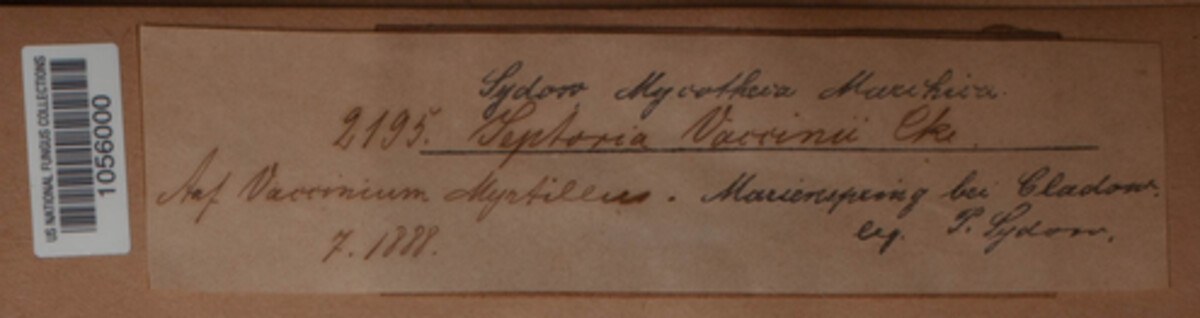 US NATIONAL FUNGUS COLLECTIONS
1056000
Sydow Mycotheca Marchica.
2195. Septoria Vaccinii Cke.
Auf Vaccinium Myrtillus. Marienspring bei Cladow.
7. 1888. leg. P. Sydow.